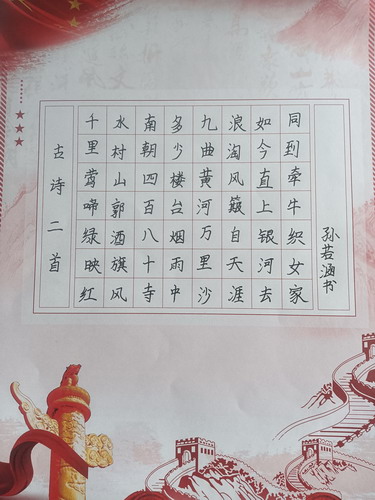 古诗二首
千里莺啼绿映红
水村山郭酒旗风
南朝四百八十寺
多少楼台烟雨中
九曲黄河万里沙
浪淘风簸自天涯
如今直上银河去
同到牵牛织女家
孙若涵书